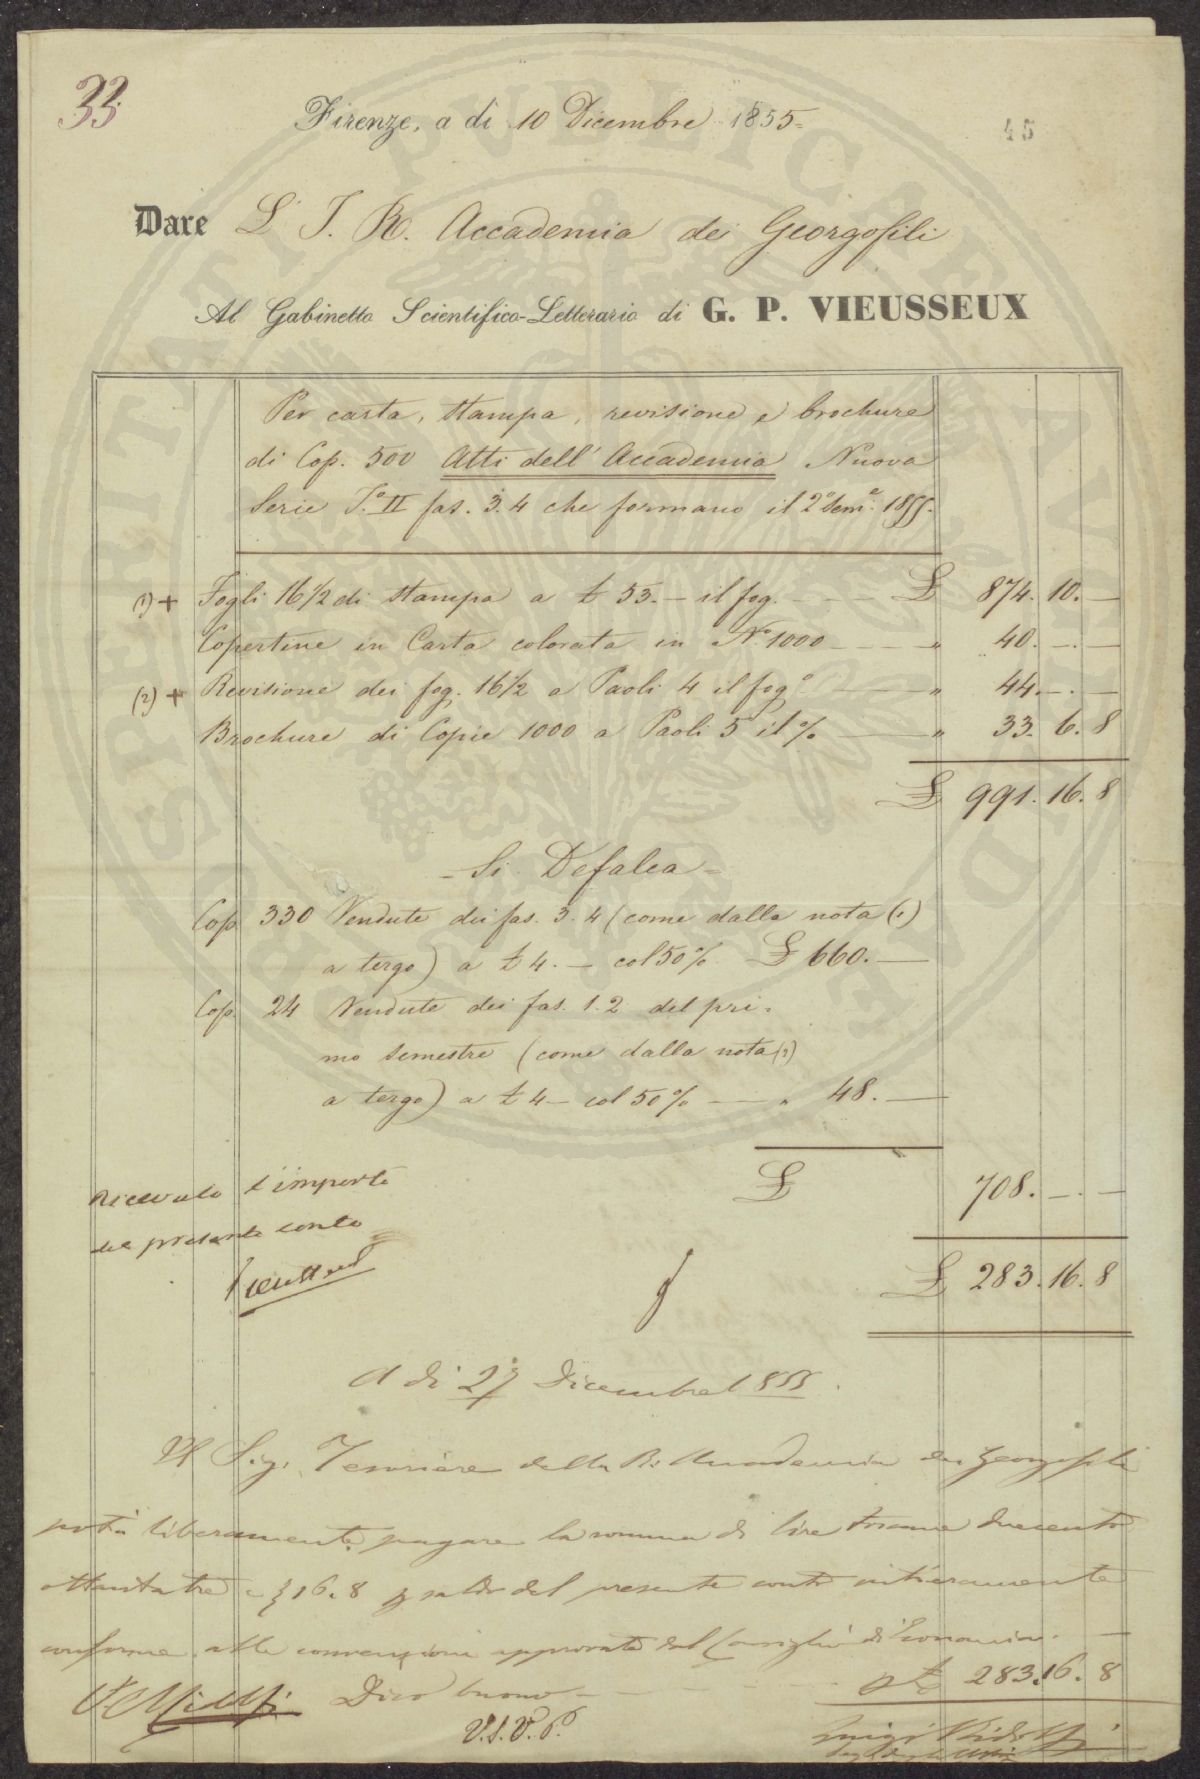 33
Firenze, a di 10 Dicembre 1855=
45
Dare L' I. R. Accademia dei Georgofili
Al Gabinetto Scientifico-Letterario di G. P. VIEUSSEUX
Per carta, stampa, revisione, e brochure
di Cop. 500 Atti dell' Accademia Nuova
Serie T.o II fas. 3. 4 che formano il 2o Sem.e 1855.
(1) + Fogli 16 1/2 di stampa a £ 53. — il fog. - - - £ 874. 10. —
Copertine in Carta colorata in No 1000 - - - " 40. —. —
(2) + Revisione dei fog. 16 1/2 a Paoli 4 il fogo. — " 44. —. —
Brochure di Copie 1000 a Paoli 5 il % — " 33. 6. 8
£ 991. 16. 8
= Si Defalca =
Cop. 330 Vendute dei fas. 3. 4 (come dalla nota (1)
a tergo) a £ 4. — col 50% £ 660. —
Cop. 24 Vendute dei fas. 1. 2 del pri=
mo semestre (come dalla nota (2)
a tergo) a £ 4 — col 50% — " 48. —
£ 708. —. —
Ricevuto l'importo
del presente conto
Vieusseux
£ 283. 16. 8
A dì 27 Dicembre 1855.
Il Sig. Tesoriere della R. Accademia dei Georgofili
potrà liberamente pagare la somma di lire toscane duecento
ottantatre e 16. 8 p saldo del presente conto intieramente
conforme alle convenzioni approvate dal Consiglio di Economia. —
£ 283. 16. 8
Dico buono
V. S. V. P.
Luigi Ridolfi